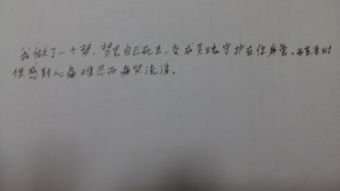 我做了一个梦，梦见自己死去，变成灵魂守护在你身旁。醒来时
你感到心痛难忍而痛哭流涕。